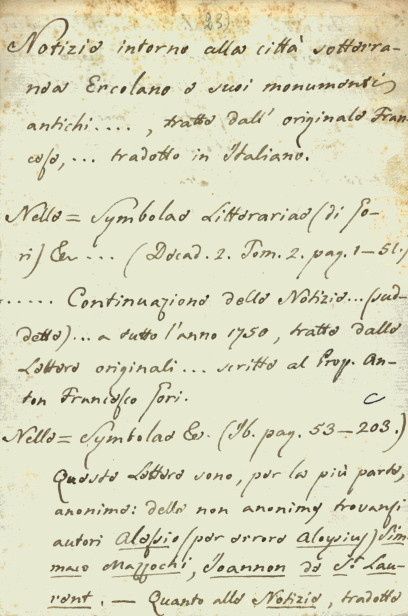 239
Notizie intorno alla città sotterra-
nea Ercolano e suoi monumenti
antichi...., tratte dall' originale Fran-
cese,... tradotto in Italiano.
Nelle = Symbolae Litterariae (di Go-
ri) &c... (Decad. 2. Tom. 2. pag. 1-51.)
..... Continuazione delle Notizie...(sud-
dette)... a tutto l'anno 1750, tratta dalle
Lettere originali... scritte al Prop. An-
ton Francesco Gori.
Nelle = Symbolae &c. (Ib. pag. 53-203.)
Queste Lettere sono, per la più parte,
anonime: delle non anonime trovansi
autori Alessio (per errore Aloysius) Sim-
maco Mazzochi, Joannon de St Lau-
rent. - Quanto alle Notizie, tradotte